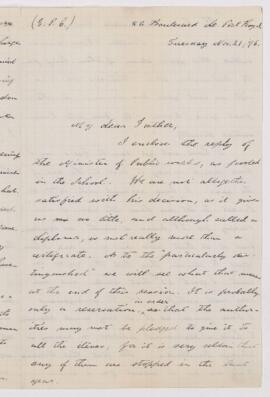 (E.P.C.)
Boulevard de Port Royal
Tuesday Nov. 21, '76.
My dear Father,
I enclose the reply of
the Minister of Public works, as posted
in the School. We are not altogether
satisfied with his decision, as it gives
us no title, and although called a
diploma, is not really more than a
certificate. As to the "particularly dis-
tinguished" we will see what that means
at the end of the session. It is probably
only a reservation, in order that the author-
ities may not be pledged to give it to
all the élèves, for it is very seldom that
any of them are stopped in the
year.